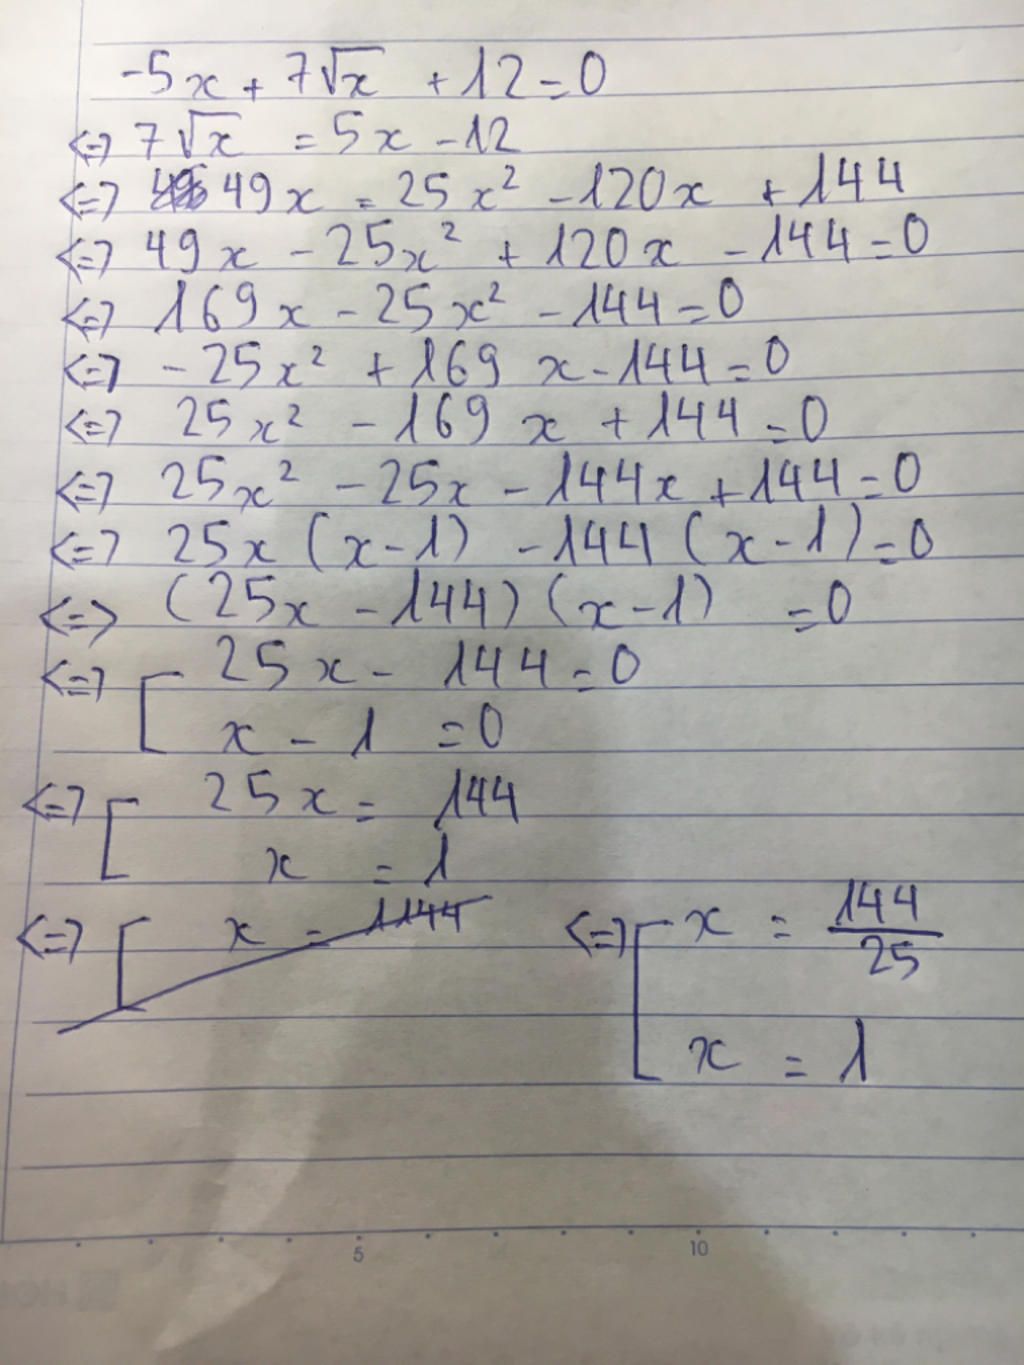 -5x + 7√x + 12 = 0
<=> 7√x = 5x - 12
<=> 49x = 25x² - 120x + 144
<=> 49x - 25x² + 120x - 144 = 0
<=> 169x - 25x² - 144 = 0
<=> - 25x² + 169x - 144 = 0
<=> 25x² - 169x + 144 = 0
<=> 25x² - 25x - 144x + 144 = 0
<=> 25x (x - 1) - 144 (x - 1) = 0
<=> (25x - 144) (x - 1) = 0
<=> [ 25x - 144 = 0
x - 1 = 0
<=> [ 25x = 144
x = 1
<=> [ x = 1144 <=> [ x = 144/25
x = 1
5 10